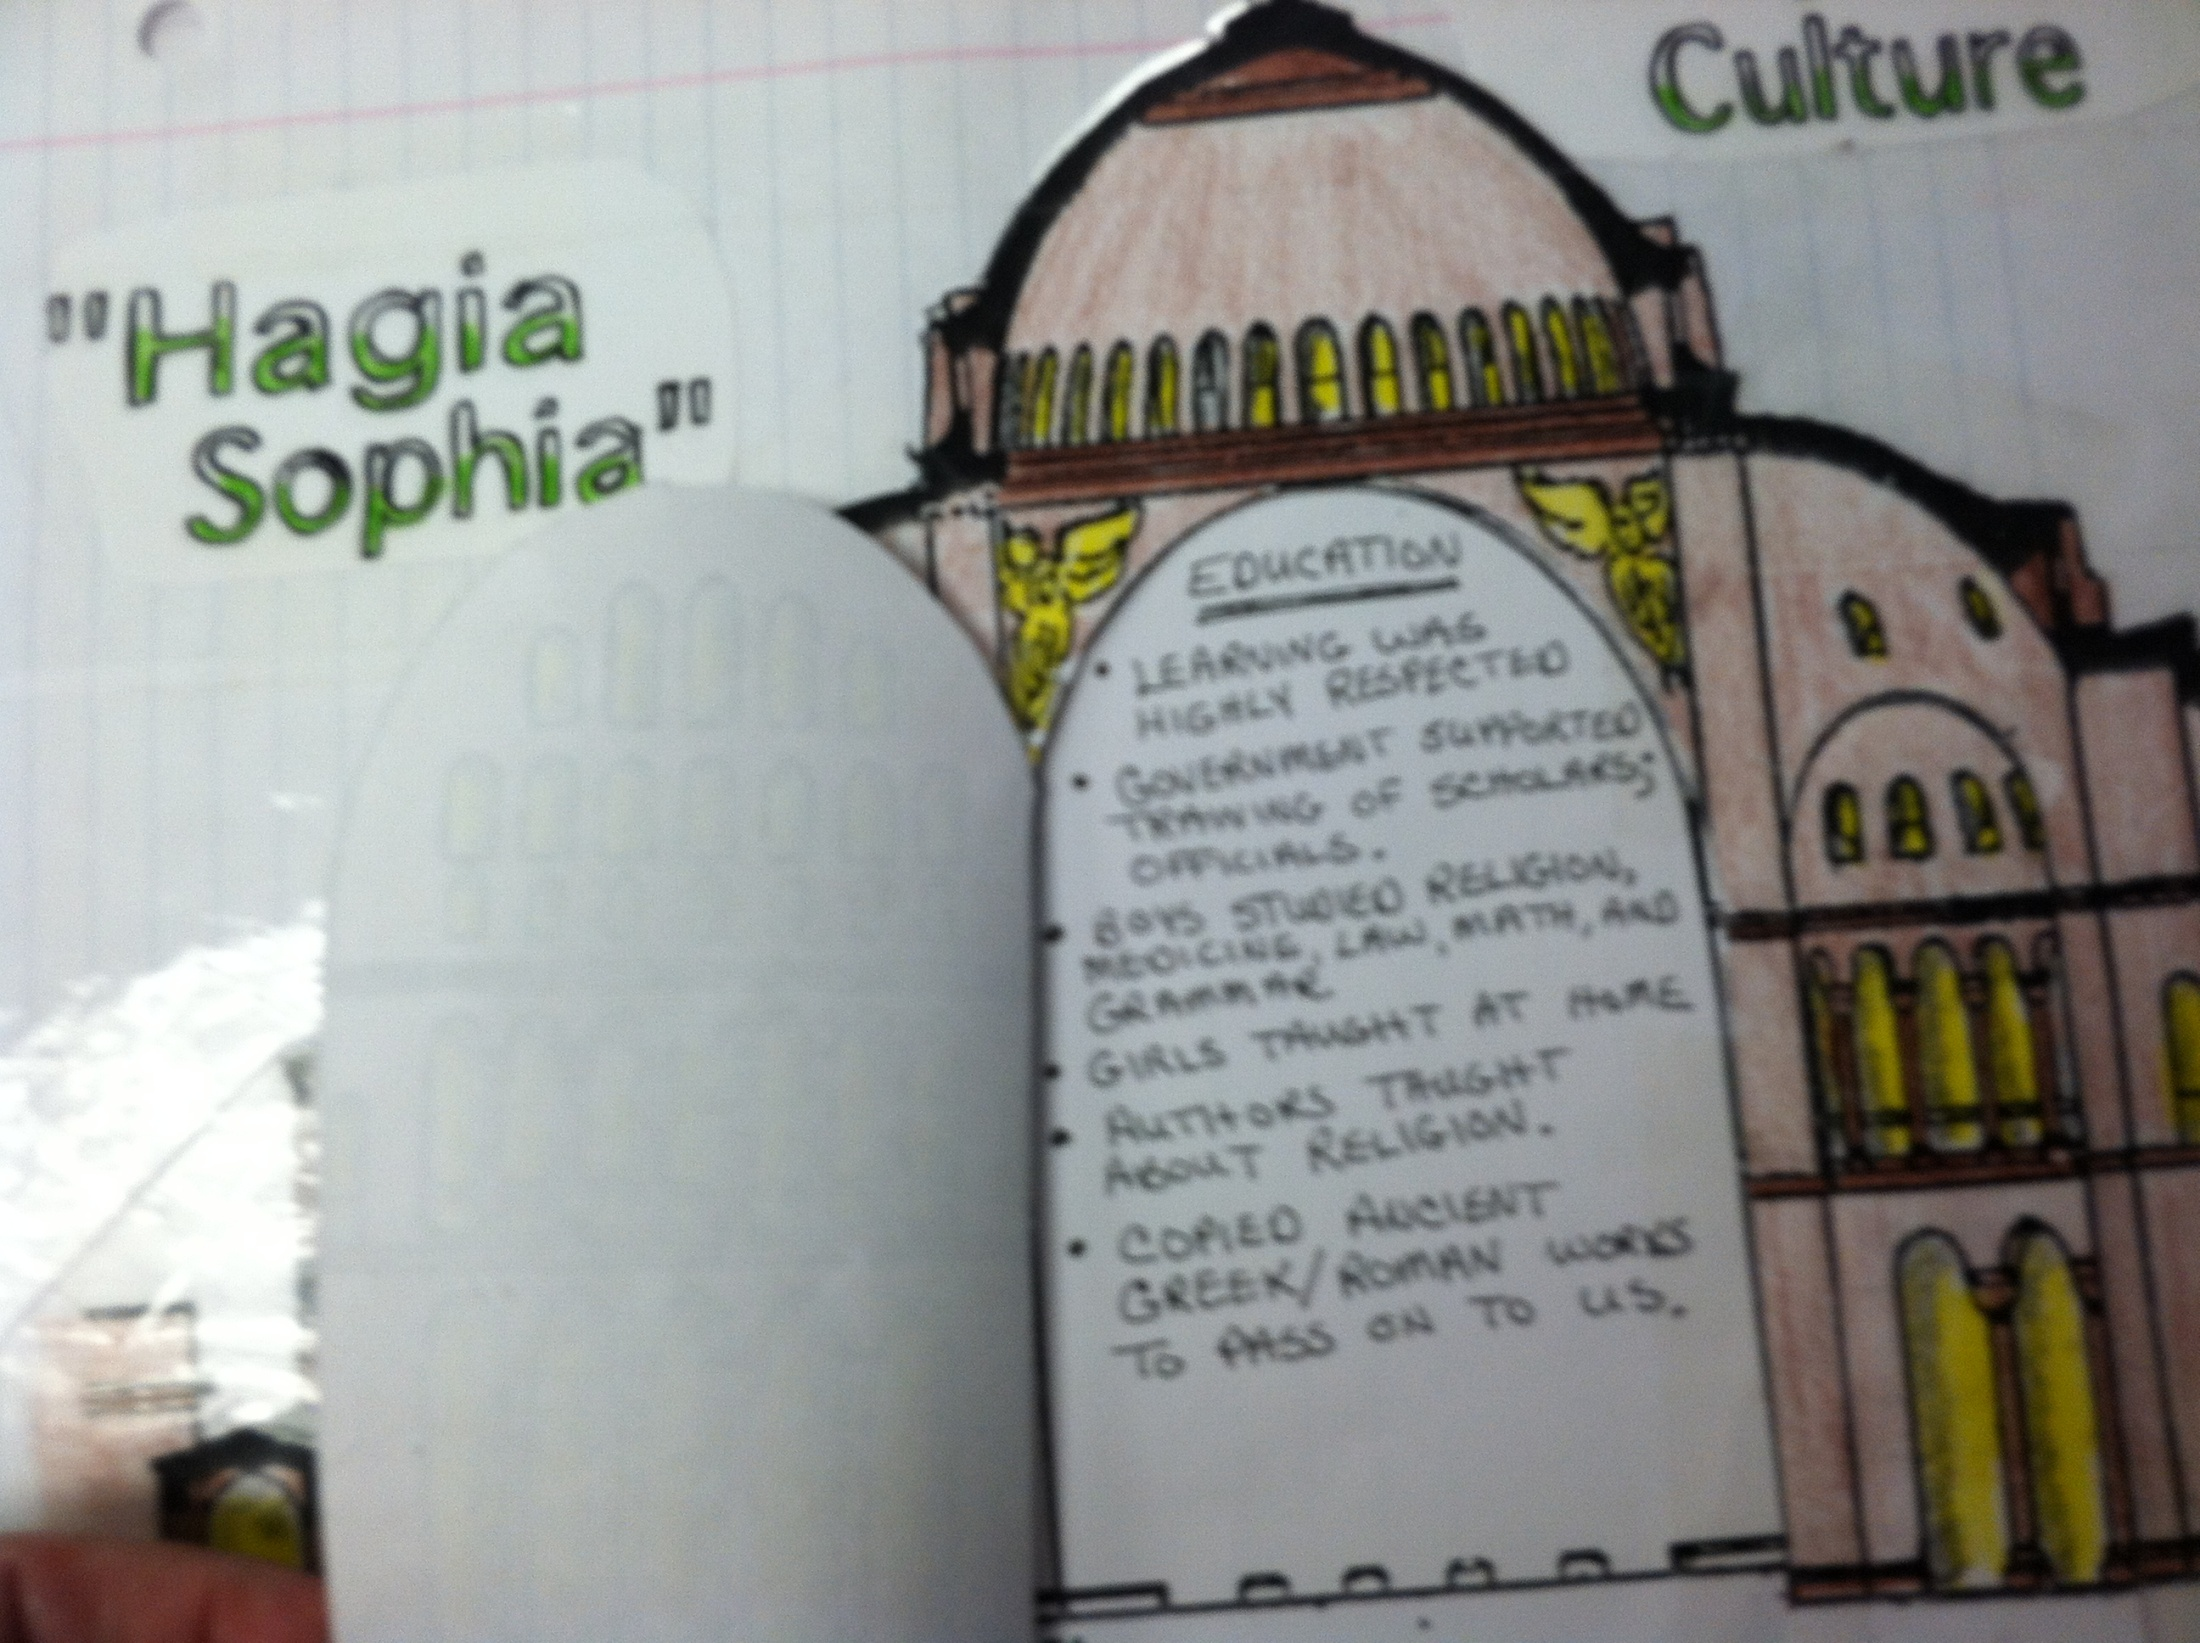 Culture
"Hagia
Sophia"
EDUCATION
• LEARNING WAS
HIGHLY RESPECTED
• GOVERNMENT SUPPORTED
TRAINING OF SCHOLARS;
OFFICIALS.
• BOYS STUDIED RELIGION,
MEDICINE, LAW, MATH, AND
GRAMMAR
• GIRLS TAUGHT AT HOME
• AUTHORS TAUGHT
ABOUT RELIGION.
• COPIED ANCIENT
GREEK/ROMAN WORKS
TO PASS ON TO US.